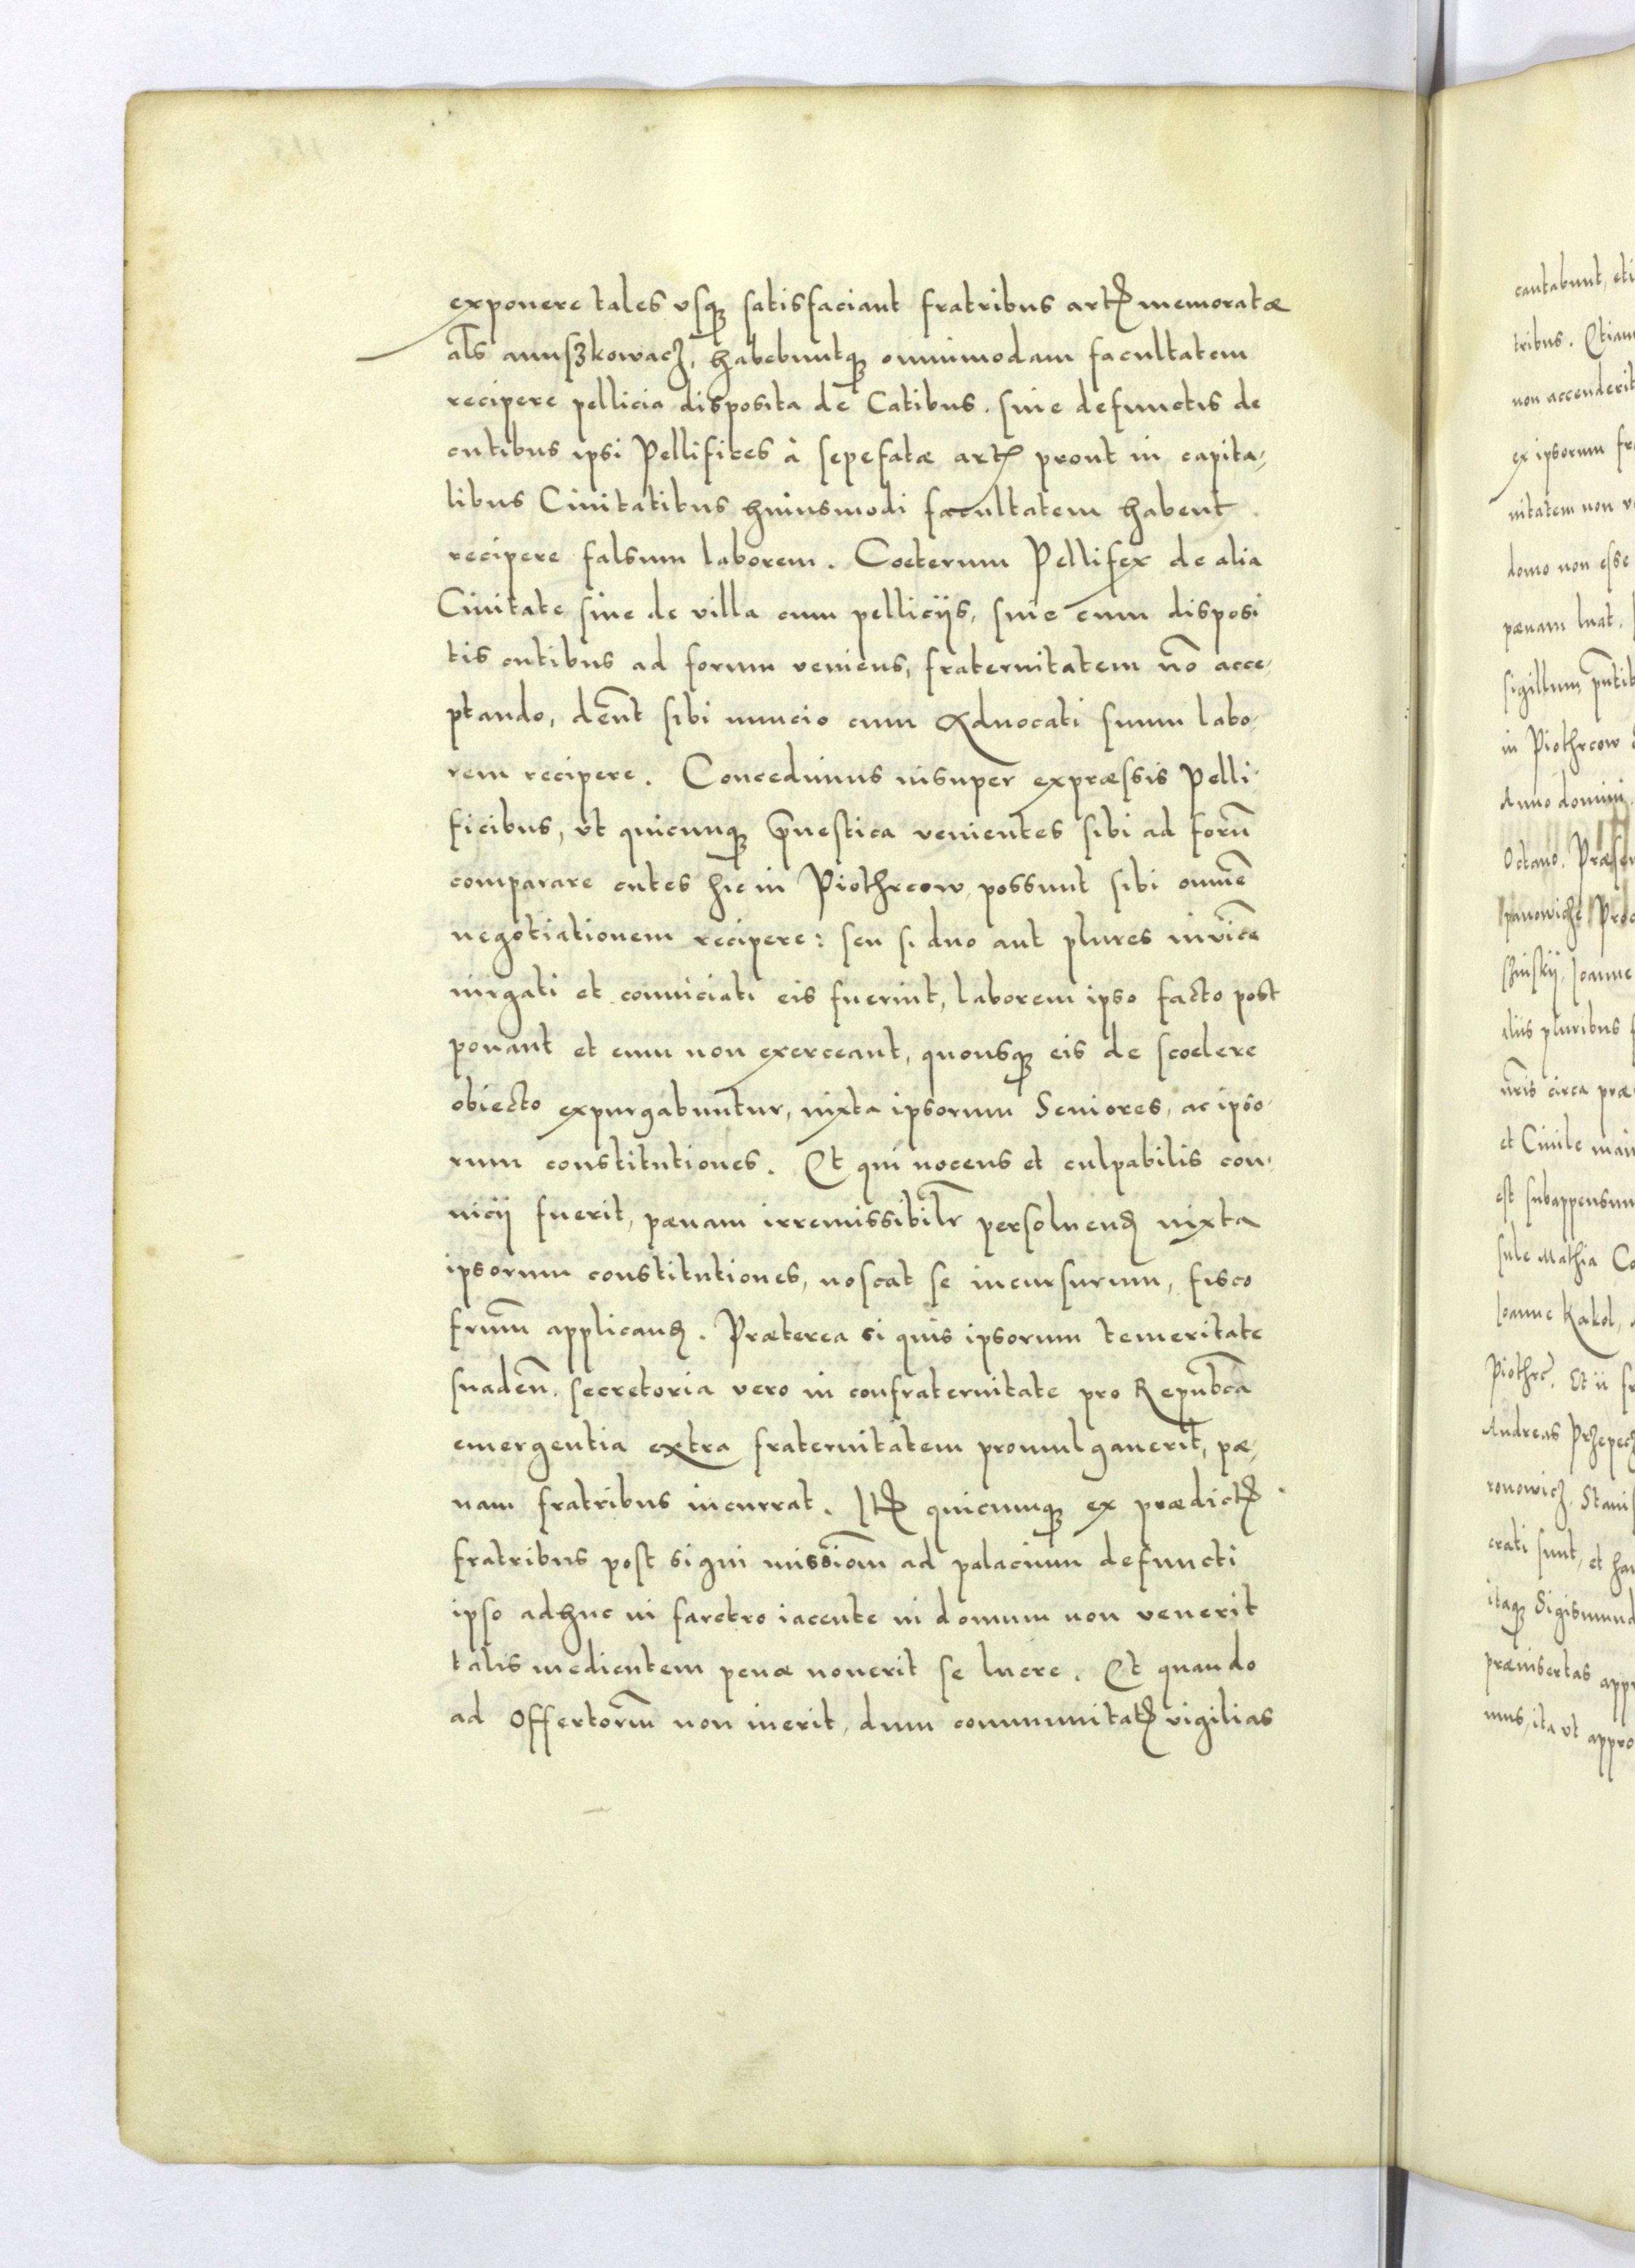 exponere tales vsq satisfaciant fratribus art memoratæ
als anuszkowacz, habebuntq omnimodam facultatem
recipere pellicia disposita de Catibus. siue defunctis de
cutibus ipsi Pellifices à sepefatæ art prout in capita-
libus Ciuitatibus huiusmodi facultatem habent
recipere falsum laborem. Coeterum Pellifex de alia
Ciuitate siue de villa cum pellicijs, siue cum disposi
tis cutibus ad forum veniens, fraternitatem nõ acce-
ptando, deñt sibi nuncio cum Aduocati suum labo-
rem recipere. Concedimus insuper expræssis Pelli-
ficibus, vt quicunq venientes sibi ad forũ
comparare cutes hic in Piothrcow, possunt sibi omnẽ
negotiationem recipere: seu si duo aut plures inuicẽ
iurgati et conuiciati eis fuerint, laborem ipso facto post
ponant et eum non exerceant, quousq eis de scoelere
obiecto expurgabuntur, iuxta ipsorum Seniores, ac ipso-
rum constitutiones. Et qui nocens et culpabilis con-
uicij fuerit, pænam irremissibilr persoluend iuxta
ipsorum constitutiones, noscat se incursurum, fisco
frum̃ applicand. Præterea si quis ipsorum temeritate
suadeñ. secretoria vero in confraternitate pro Repubca
emergentia extra fraternitatem promulgauerit, pæ-
nam fratribus incurrat. It quicunq ex prædict
fratribus post signi missiom̃ ad palacium defuncti
ipso adhuc in faretro iacente in domum non venerit
talis medientem penæ nouerit se luere. Et quando
ad Offertorm̃ non iuerit, dum communitat vigilias
cantabunt, eti
tribus. Etiam
non accenderit
ex ipsorum fra
nitatem non v
domo non esse
pænam luat.
sigillum pñtib
in Piothrcow
Anno domini
Octauo. Præsen
Joanne
alijs pluribus
nr̃is circa præ
et Ciuile
est subappensum
sule Mathia Co
Joanne Kakol,
Piothrc. Et ii fr
Andreas Przepecz
ronowicz, Stanis
crati sunt, et ha
itaq Sigismund
præinsertas app
mus, ita vt appro